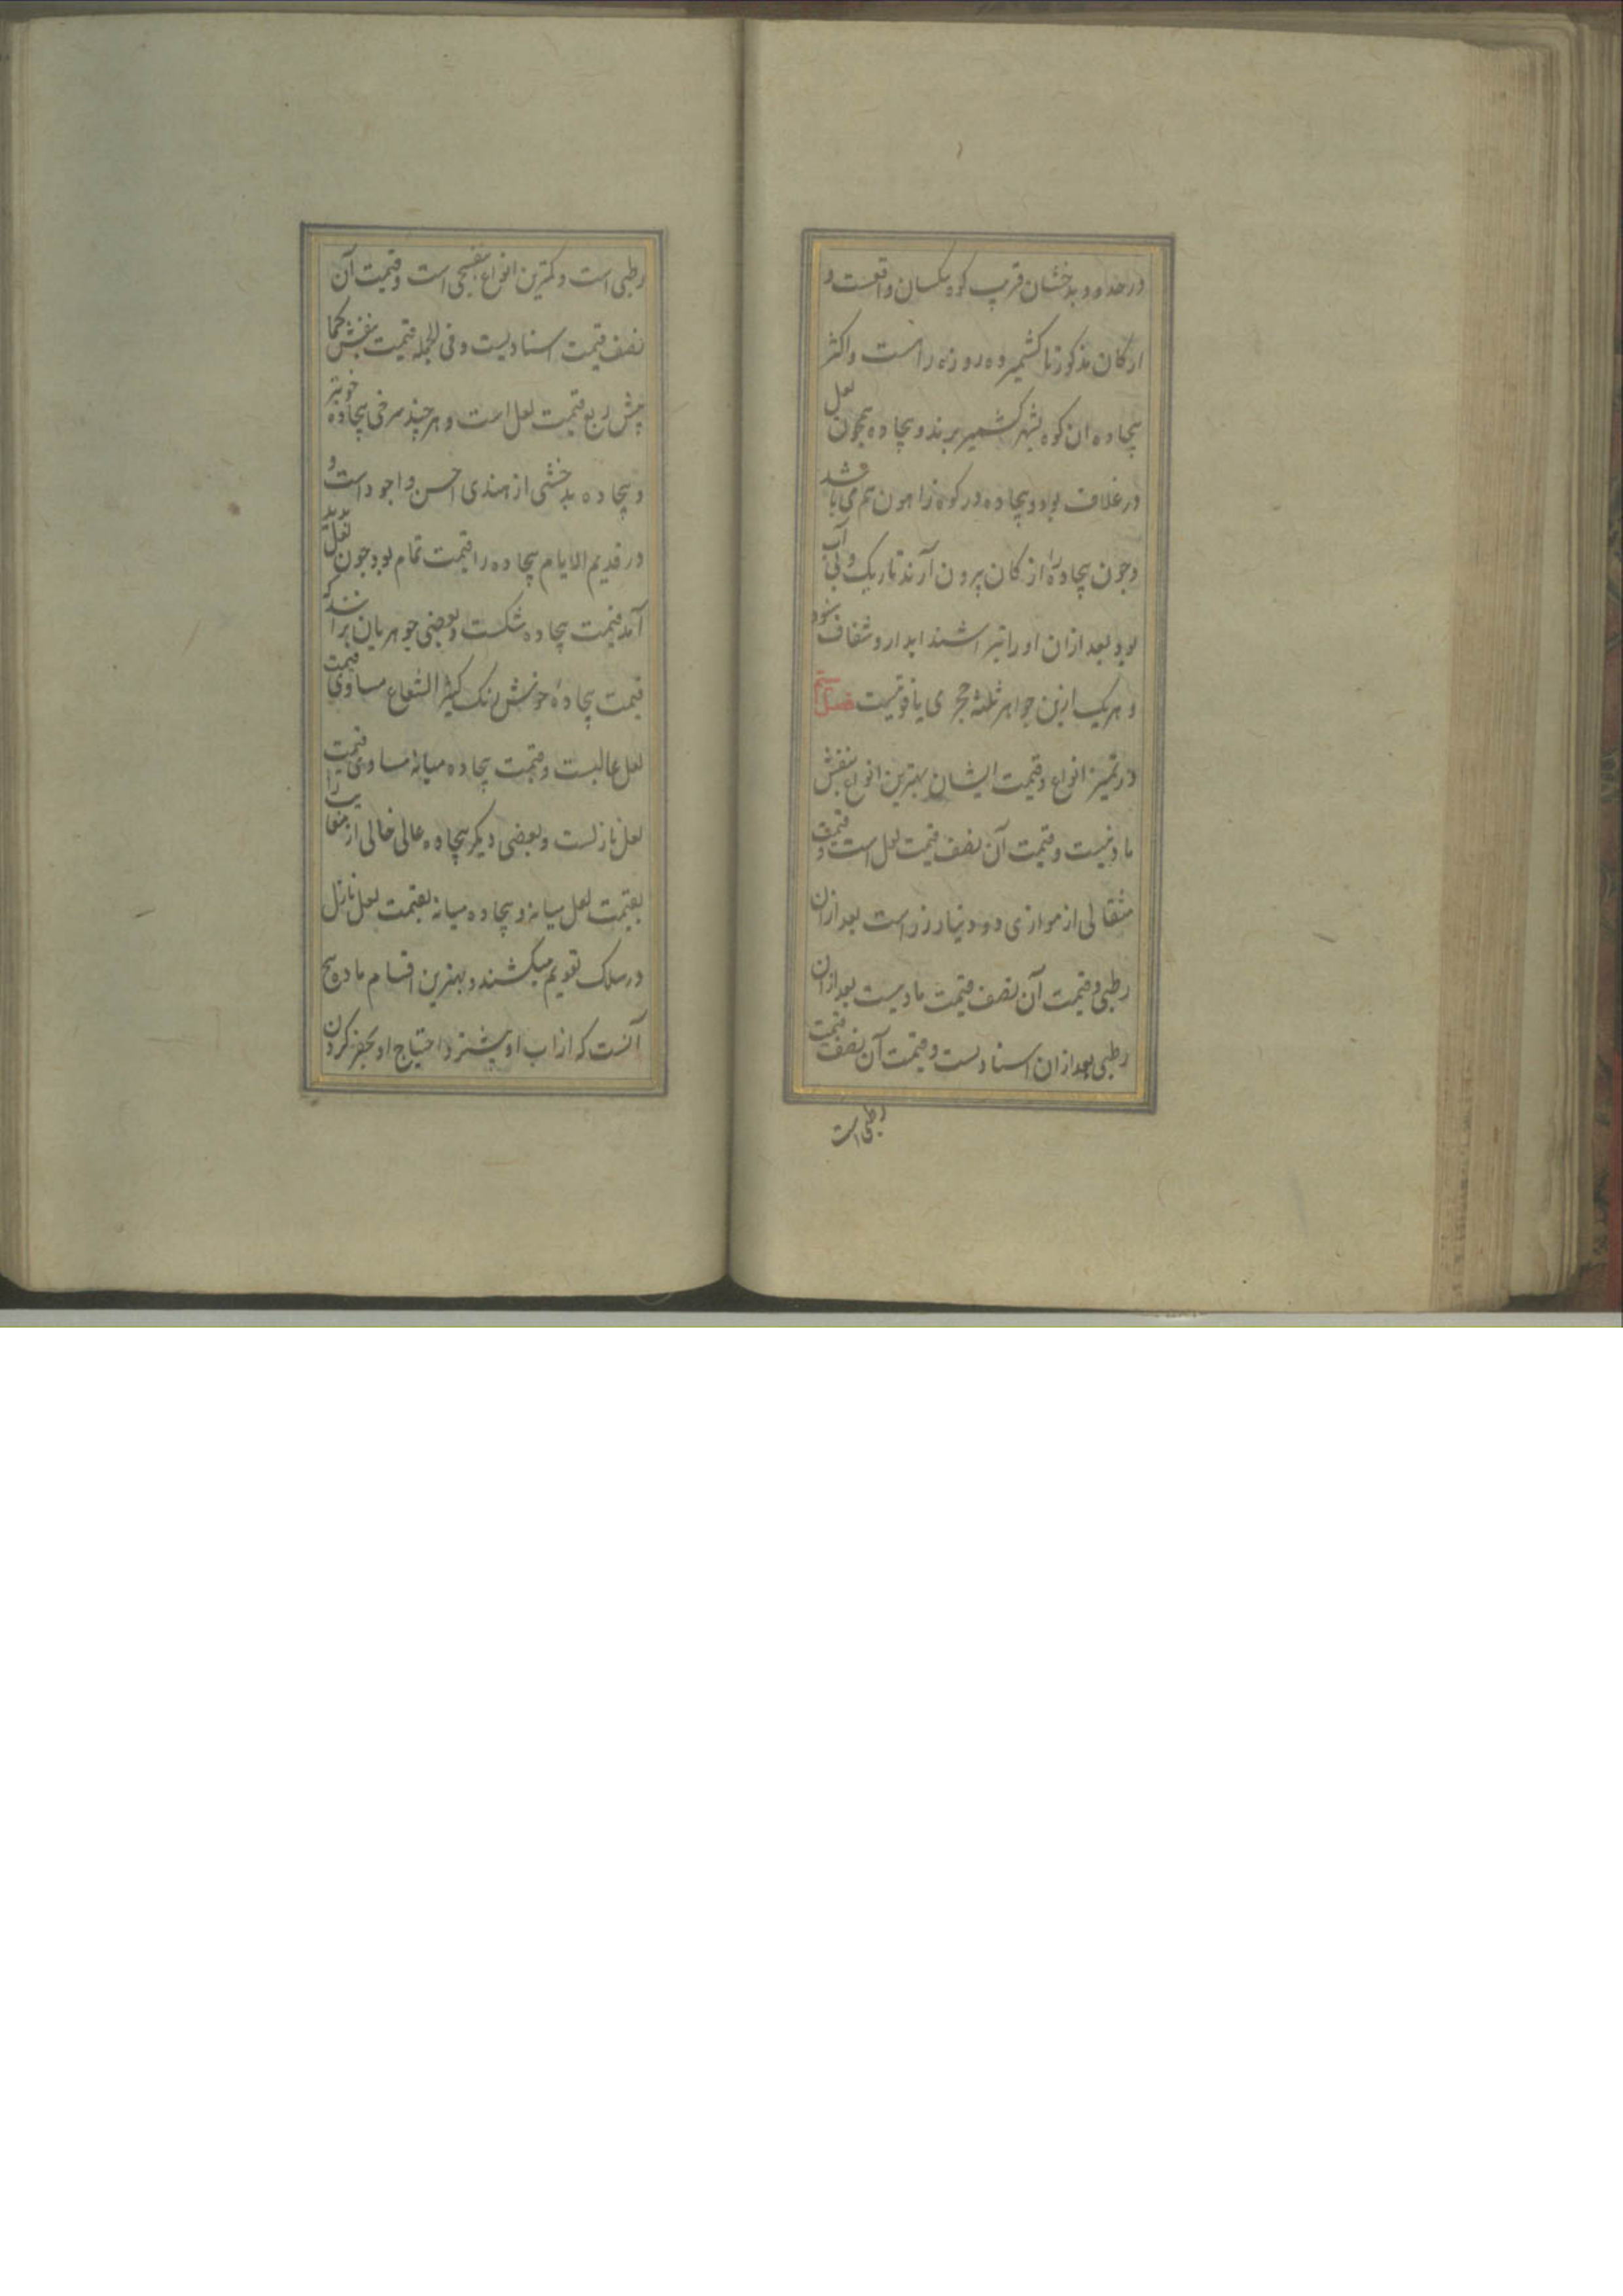 در حدود بدخشان قریب کوه یکسان واقعست و
از کان مذکور تا کشمیر ده روزه راست و اکثر
بیجاده ان کوه بشهر کشمیر برند و بیجاده همچون لعل
در غلاف بود و بیجاده در کوه راهون هم می باشد و
وجون بیجاده را از کان بیرون آرند تاریک و بی آب
بود بعد ازان او را بتراشند ابدار و شفاف شود
و هریک ازین جواهر ثلثه حجری یاقوتیست فصل سیم
در تمیز انواع و قیمت ایشان بهترین انواع بنفش
مادنیست و قیمت آن نصف قیمت لعل است و قیمت
مثقالی از موازی ده دینار زر است بعد ازان
رطبی و قیمت آن نصف قیمت مادیست بعد ازان
رطبی بعد ازان اسنادست و قیمت آن نصف قیمت
رطبی است
رطبی است و کمترین انواع بنفسجی است و قیمت آن
نصف قیمت اسنادیست و فی الجمله قیمت بنفش کما
بیش ربع قیمت لعل است و هر چند سرخی بیجاده خوبتر
و بیجاده بدخشی از هندی احسن و اجود است و
در قدیم الایام بیجاده را قیمت تمام بود جون لعل پدید
آمد قیمت بیجاده شکست و بعضی جوهریان برانند که
قیمت بیجادهٔ خوش رنک کثیر الشعاع مساوی قیمت
لعل عالیست و قیمت بیجاده میانه مساوی قیمت
لعل نازلست و بعضی دیکر بیجاده عالی خالی از معایب را
بقیمت لعل میانه و بیجاده میانه بقیمت لعل نازل
در سلک تقویم میکشند و بهترین اقسام مادنج
آنست که از اب او بیشتر و احتیاج او بحفر کردن